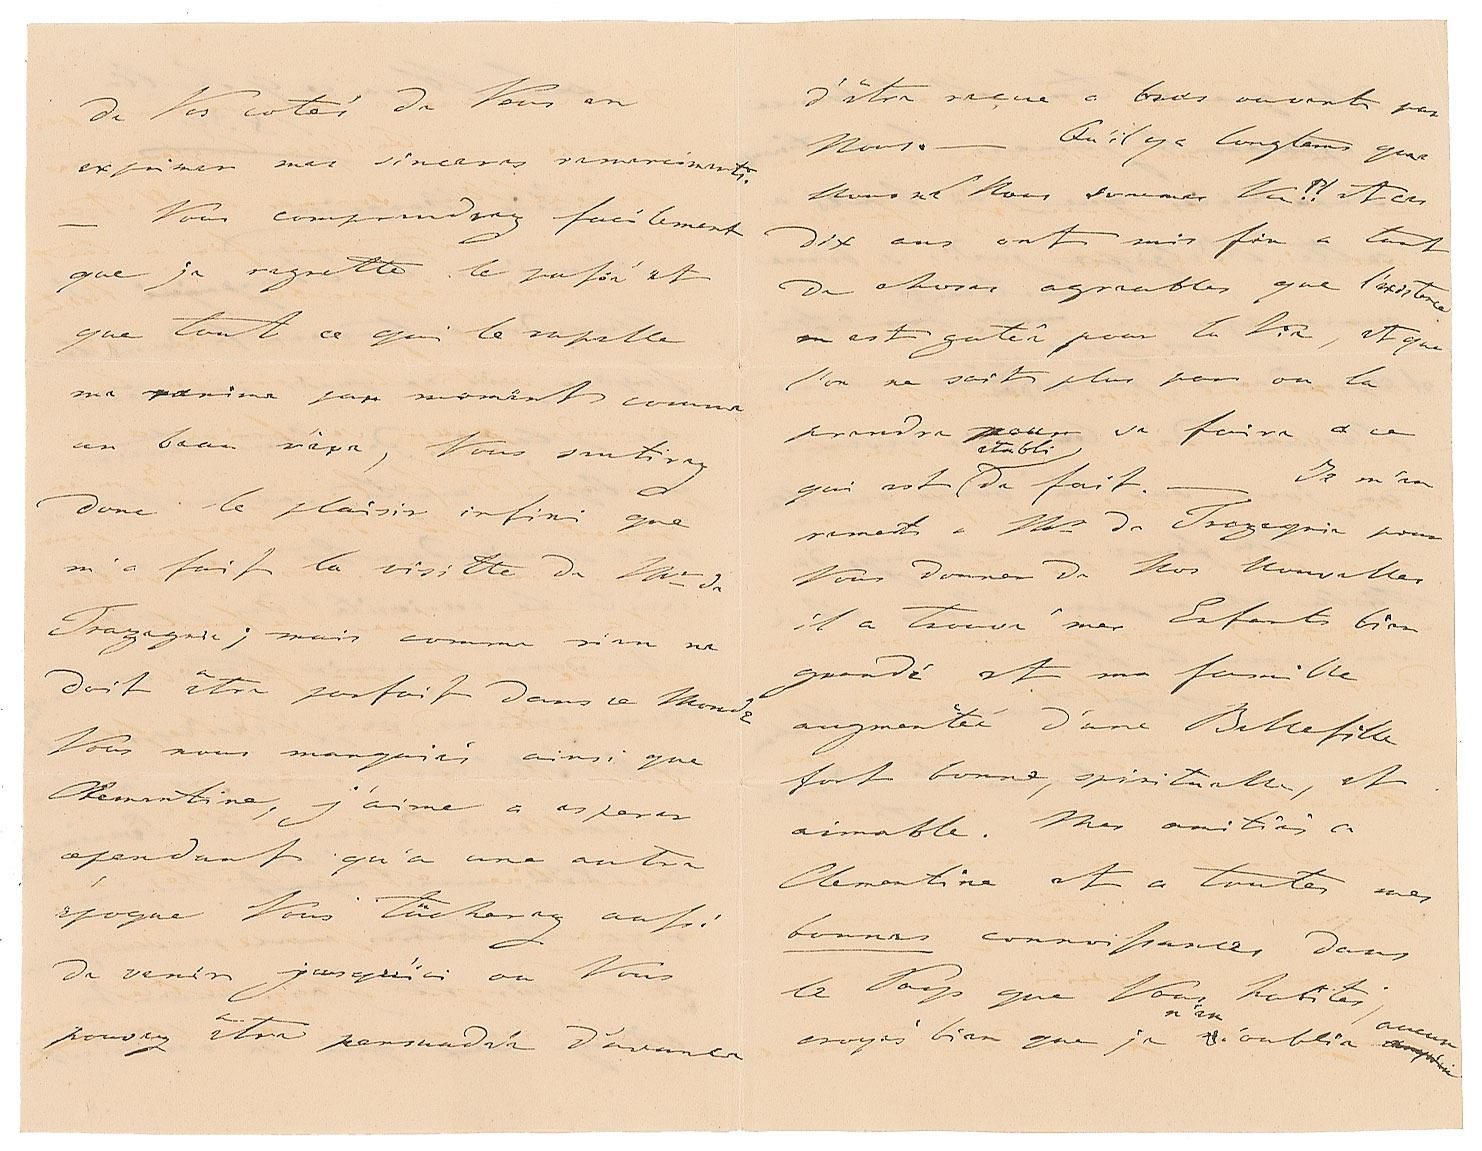 de Vos cotés de Vous en
exprimer mes sinceres remerciments.
— Vous comprendrez facilement
que je regrette le passé et
que tout ce qui le rapelle
me ranime par moments comme
un beau rêve, Vous sentirez
donc le plaisir infini que
m'a fait la visitte de Mr de
Trazegnie; mais comme rien ne
doit être parfait dans ce Monde
Vous nous manquiés ainsi que
Clementine, j'aime a esperer
cependant qu'a une autre
époque Vous tâcherez aussi
de venir jusqu'ici ou Vous
pouvez être persuadée d'avance
d'être reçue a bras ouverts par
Nous. — Qu'il y a longtems que
nous ne Nous sommes Vu!! et ces
dix ans ont mis fin a tant
de choses agreables que l'existence
en est gatée pour la Vie, et que
l'on ne sait plus par ou la
prendre pour se faire a ce
qui est établi de fait. — Je m'en
remets a Mr de Trazegnie pour
Vous donner de Nos Nouvelles
il a trouvé mes Enfants bien
grandi et ma famille
augmentée d'une Bellefille
fort bonne, spirituelle, et
aimable. Mes amitiés a
Clementine et a toutes mes
bonnes connoissances dans
le Pays que Vous habités,
croyés bien que je n'en oublie aucun